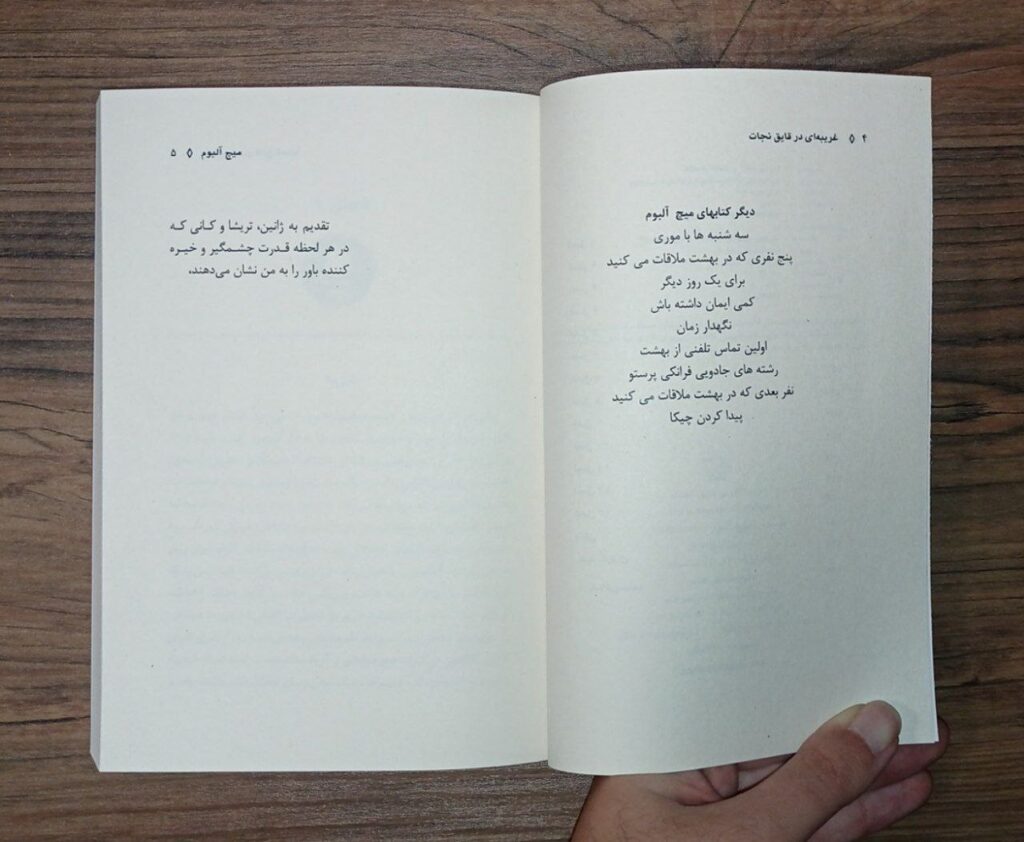 ۴ ◊ غریبه‌ای در قایق نجات
دیگر کتابهای میچ آلبوم
سه شنبه ها با موری
پنج نفری که در بهشت ملاقات می کنید
برای یک روز دیگر
کمی ایمان داشته باش
نگهدار زمان
اولین تماس تلفنی از بهشت
رشته های جادویی فرانکی پرستو
نفر بعدی که در بهشت ملاقات می کنید
پیدا کردن چیکا
میچ آلبوم ◊ ۵
تقدیم به ژانین، تریشا و کانی که
در هر لحظه قدرت چشمگیر و خیره
کننده باور را به من نشان می‌دهند.